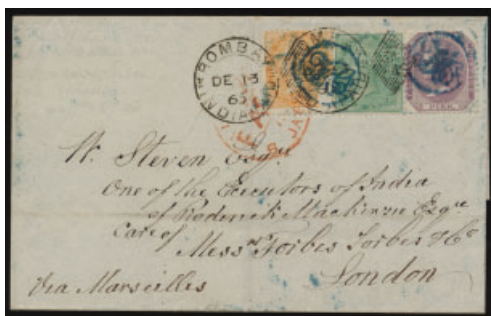 BOMBAY
DE 13
65
INDIA
PIES
W. Steven Esqre
One of the Executors of India
of Roderick Mackenzie Esqre
Care of Messrs Forbes Forbes & Co
London
Via Marseilles